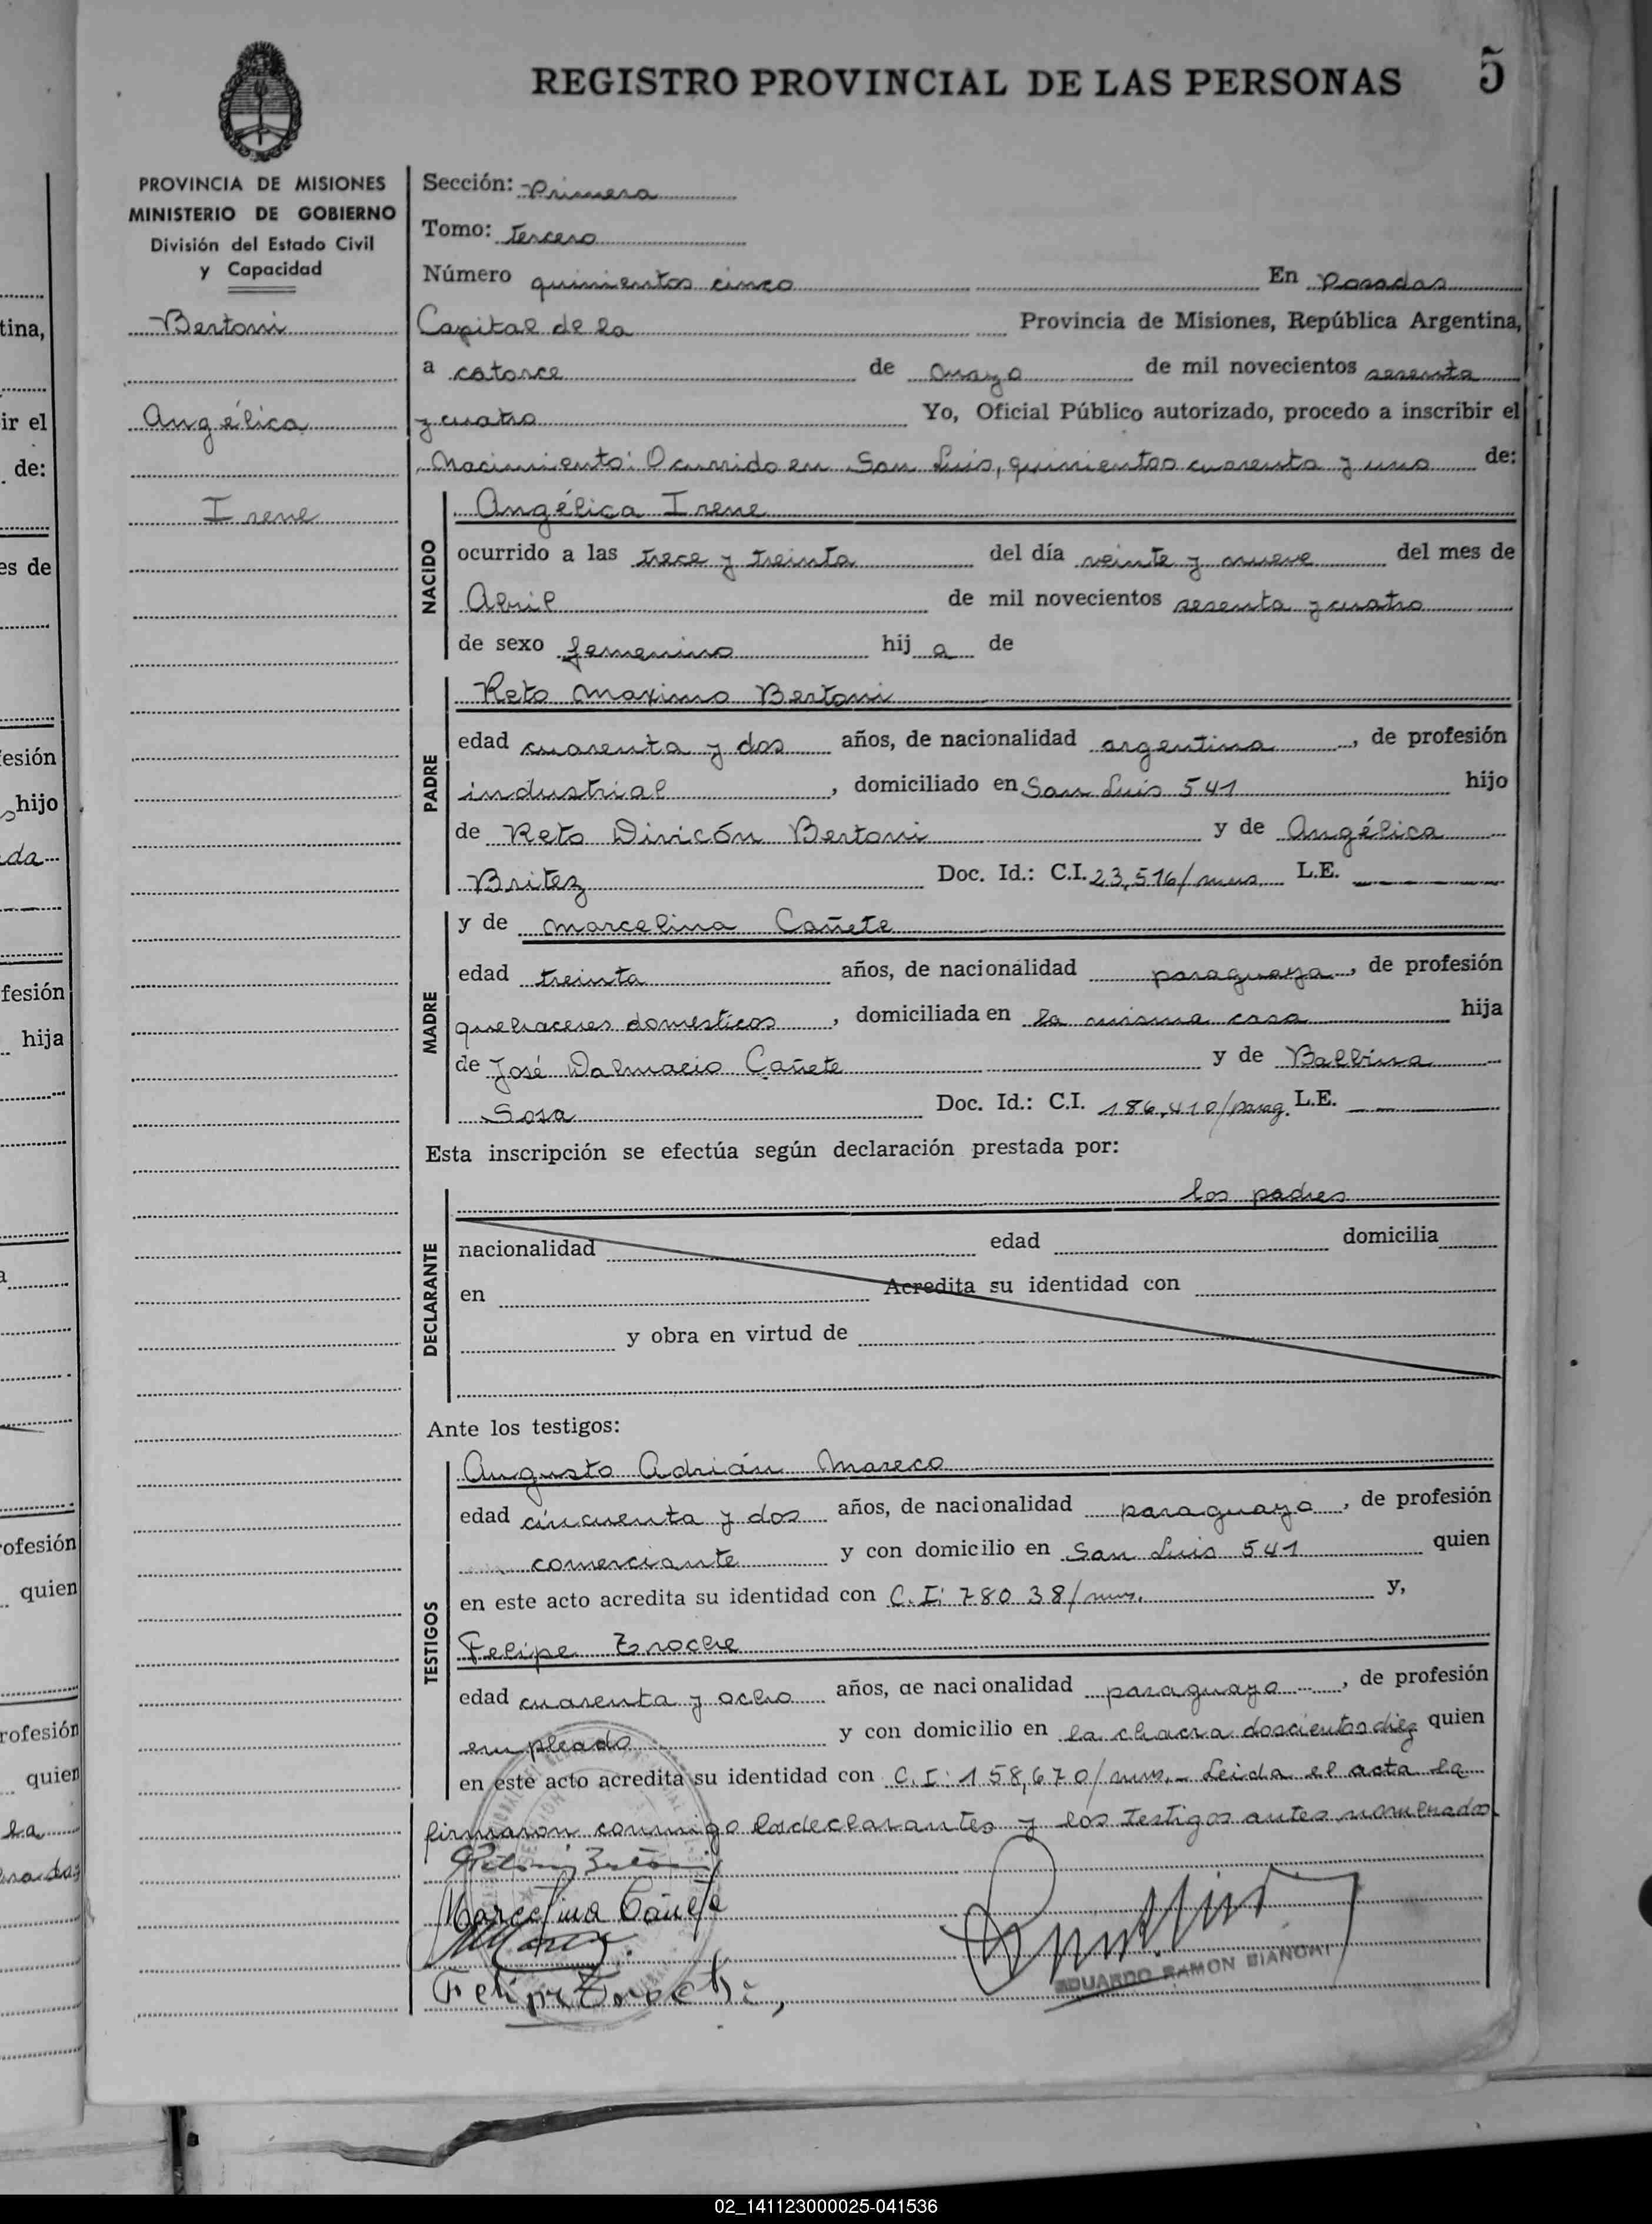 REGISTRO PROVINCIAL DE LAS PERSONAS 5
PROVINCIA DE MISIONES
MINISTERIO DE GOBIERNO
División del Estado Civil
y Capacidad
Bertoni
Angélica
Irene
Sección: Primera
Tomo: tercero
Número quinientos cinco En Posadas
Capital de la Provincia de Misiones, República Argentina,
a catorce de mayo de mil novecientos sesenta
y cuatro Yo, Oficial Público autorizado, procedo a inscribir el
Nacimiento: Ocurrido en San Luis, quinientos cuarenta y uno de:
NACIDO
Angélica Irene
ocurrido a las trece y treinta del día veinte y nueve del mes de
Abril de mil novecientos sesenta y cuatro
de sexo femenino hij a de
PADRE
Reto Maximo Bertoni
edad cuarenta y dos años, de nacionalidad argentina, de profesión
industrial, domiciliado en San Luis 541 hijo
de Reto Divicón Bertoni y de Angélica
Britez Doc. Id.: C.I. 23,516/mns L.E.
MADRE
y de Marcelina Cañete
edad treinta años, de nacionalidad paraguaya, de profesión
quehaceres domesticos, domiciliada en la misma casa hija
de José Dalmacio Cañete y de Balbina
Sosa Doc. Id.: C.I. 186,410/parag. L.E.
Esta inscripción se efectúa según declaración prestada por:
DECLARANTE
los padres
nacionalidad edad domicilia
en Acredita su identidad con
y obra en virtud de
Ante los testigos:
TESTIGOS
Augusto Adrián Mareco
edad cincuenta y dos años, de nacionalidad paraguaya, de profesión
comerciante y con domicilio en San Luis 541 quien
en este acto acredita su identidad con C.I: 78038/mns. y,
Felipe Enoche
edad cuarenta y ocho años, de nacionalidad paraguaya, de profesión
empleado y con domicilio en la chacra doscientos diez quien
en este acto acredita su identidad con C.I: 158,670/mns.- Leida el acta la
firmaron conmigo los declarantes y los testigos antes nombrados
Marcelina Cañete
Felipe
EDUARDO RAMON BIANCHI
tina,
ir el
de:
es de
esión
hijo
da
fesión
hija
ofesión
quien
rofesión
quien
la
02_141123000025-041536